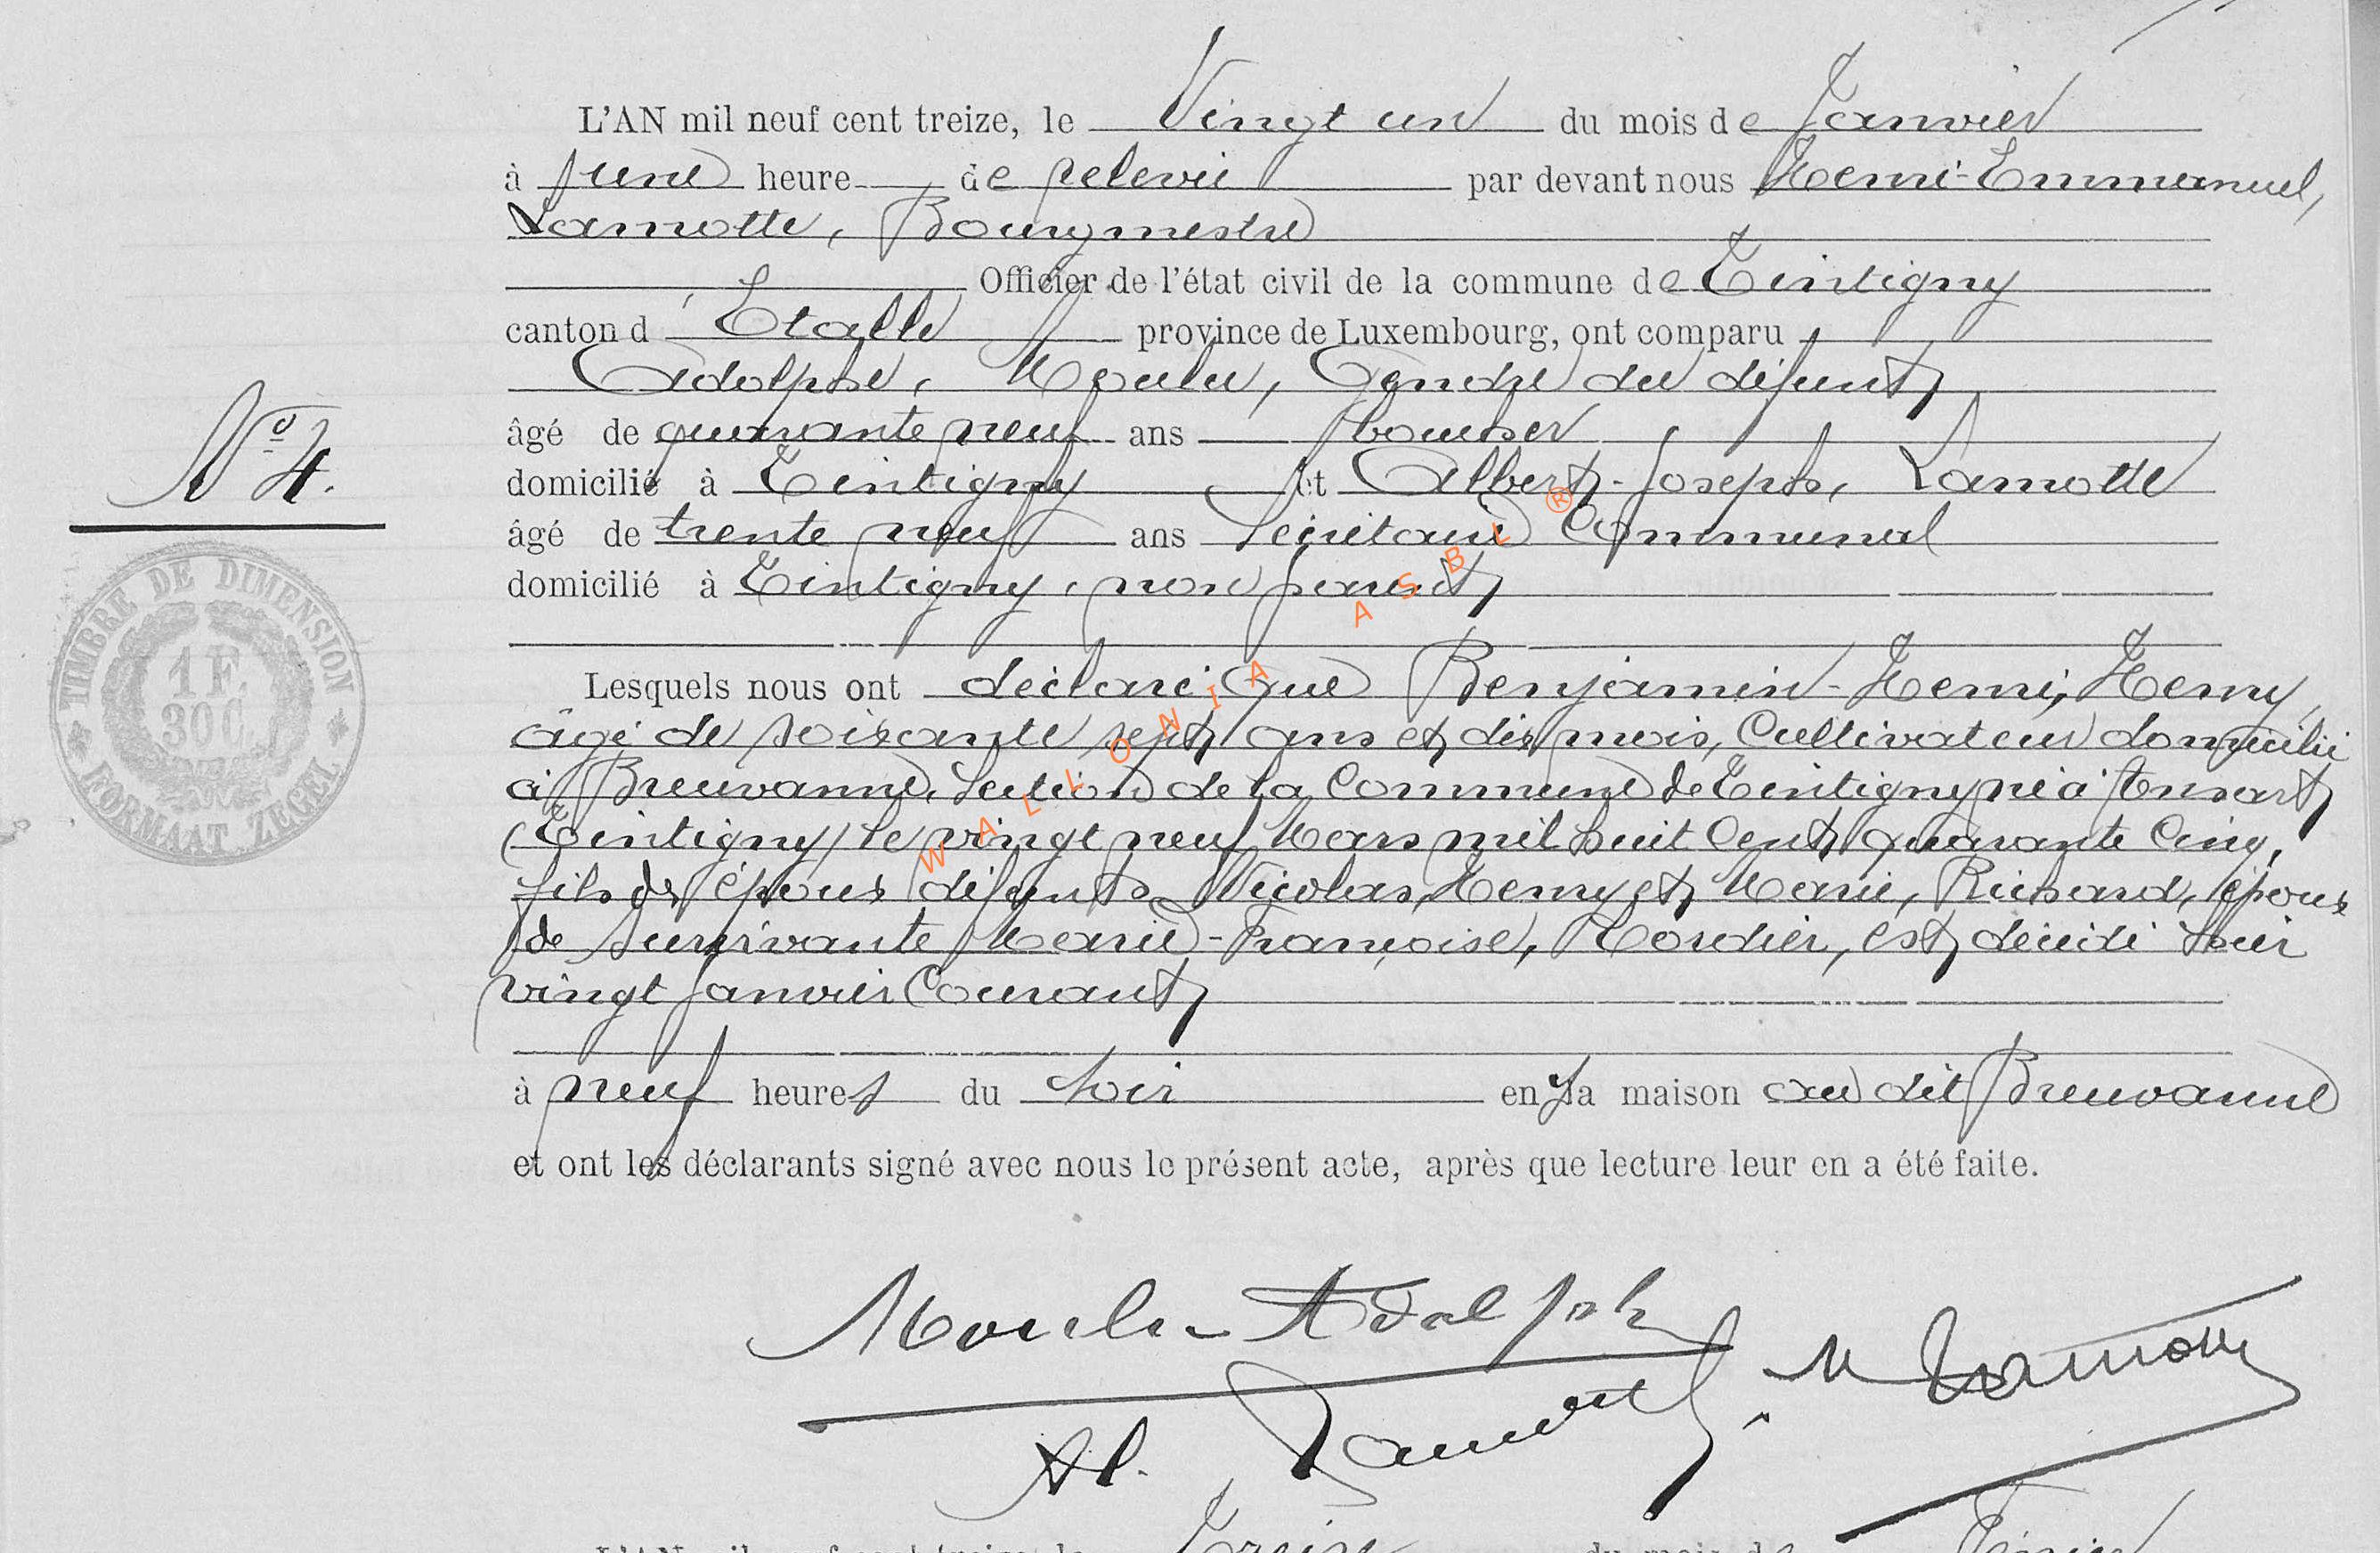 L'AN mil neuf cent treize, le Vingt un du mois de Janvier
à une heure de relevée par devant nous Henri-Emmanuel,
Lamotte, Bourgmestre
Officier de l'état civil de la commune de Tintigny
canton d'Etalle province de Luxembourg, ont comparu
Adolphe, Moulu, Gendre du défunt
âgé de quarante neuf ans boucher
domicilié à Tintigny et Albert-Joseph, Lamotte
N° 4.
âgé de trente neuf ans Secrétaire Communal
domicilié à Tintigny, non parent
TIMBRE DE DIMENSION
1 F. 30 C.
FORMAAT ZEGEL
Lesquels nous ont déclaré que Benjamin-Henri, Henry,
âgé de soixante sept ans et dix mois, Cultivateur domicilié
à Breuvanne, Section de la Commune de Tintigny né à Ansart
(Tintigny) le vingt neuf Mars mil huit Cent quarante Cinq,
fils des époux défunts Nicolas, Henry et Marie, Richard, époux
de survivante Marie-Françoise, Cordier, est décédé hier
vingt Janvier Courant
à neuf heures du soir en sa maison au dit Breuvanne
et ont les déclarants signé avec nous le présent acte, après que lecture leur en a été faite.
Moulu-Adolphe
Al. Lamotte
H Lamotte
WALLONIA ASBL ®